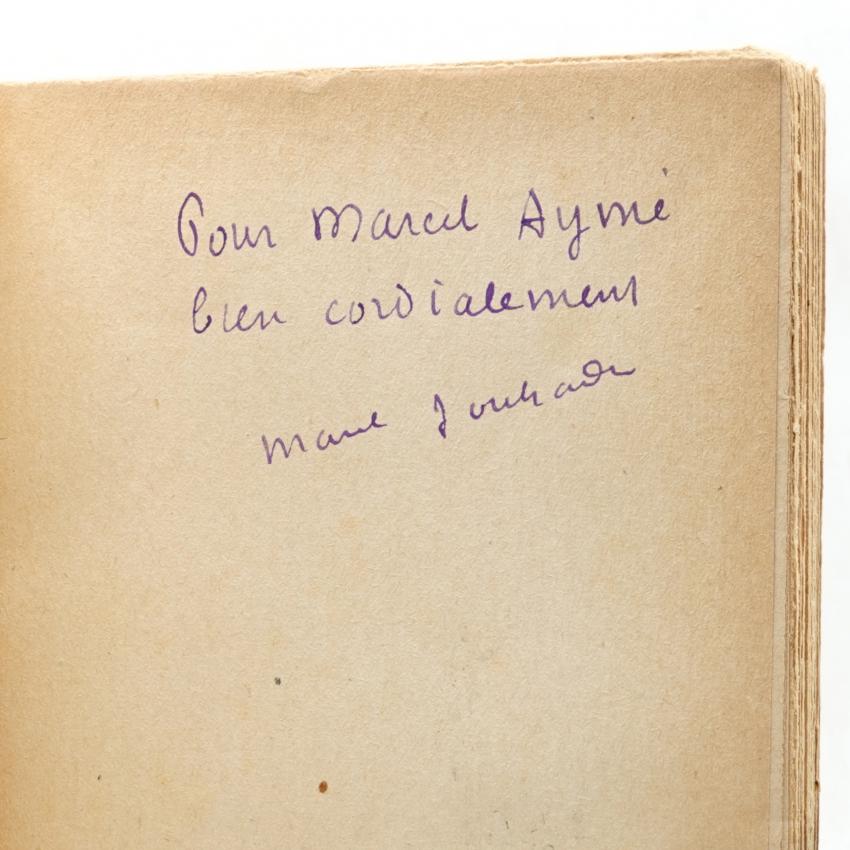 Pour Marcel Aymé
bien cordialement
Marcel Jouhandeau